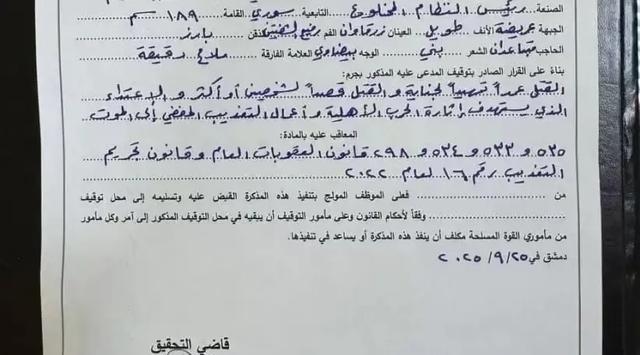 الصنعة رئيس النظام المخلوع التابعية سوري القامة ١٨٩ سم
الجبهة عريضة الأنف طويل العينان زرقاوان الفم رفيع الشفتين الذقن بارز
الحاجب متباعدان الشعر بني الوجه بيضاوي العلامة الفارقة ملامح دقيقة
بناءً على القرار الصادر بتوقيف المدعى عليه المذكور بجرم:
القتل عمداً تمهيداً لجناية و القتل قصداً لشخصين أو أكثر و الاعتداء
الذي يستهدف إثارة الحرب الأهلية و أعمال التعذيب المفضي إلى الموت
المعاقب عليه بالمادة:
٥٣٥ و ٥٣٣ و ٥٣٤ و ٢٩٨ قانون العقوبات العام و قانون تجريم
التعذيب رقم ١٦ لعام ٢٠٢٢
من فعلى الموظف المولج بتنفيذ هذه المذكرة القبض عليه وتسليمه إلى محل توقيف
وفقاً لأحكام القانون وعلى مأمور التوقيف أن يبقيه في محل التوقيف المذكور إلى آمر وكل مأمور
من مأموري القوة المسلحة مكلف أن ينفذ هذه المذكرة أو يساعد في تنفيذها.
دمشق في ٢٥/٩/٢٠٢٥
قاضي التحقيق